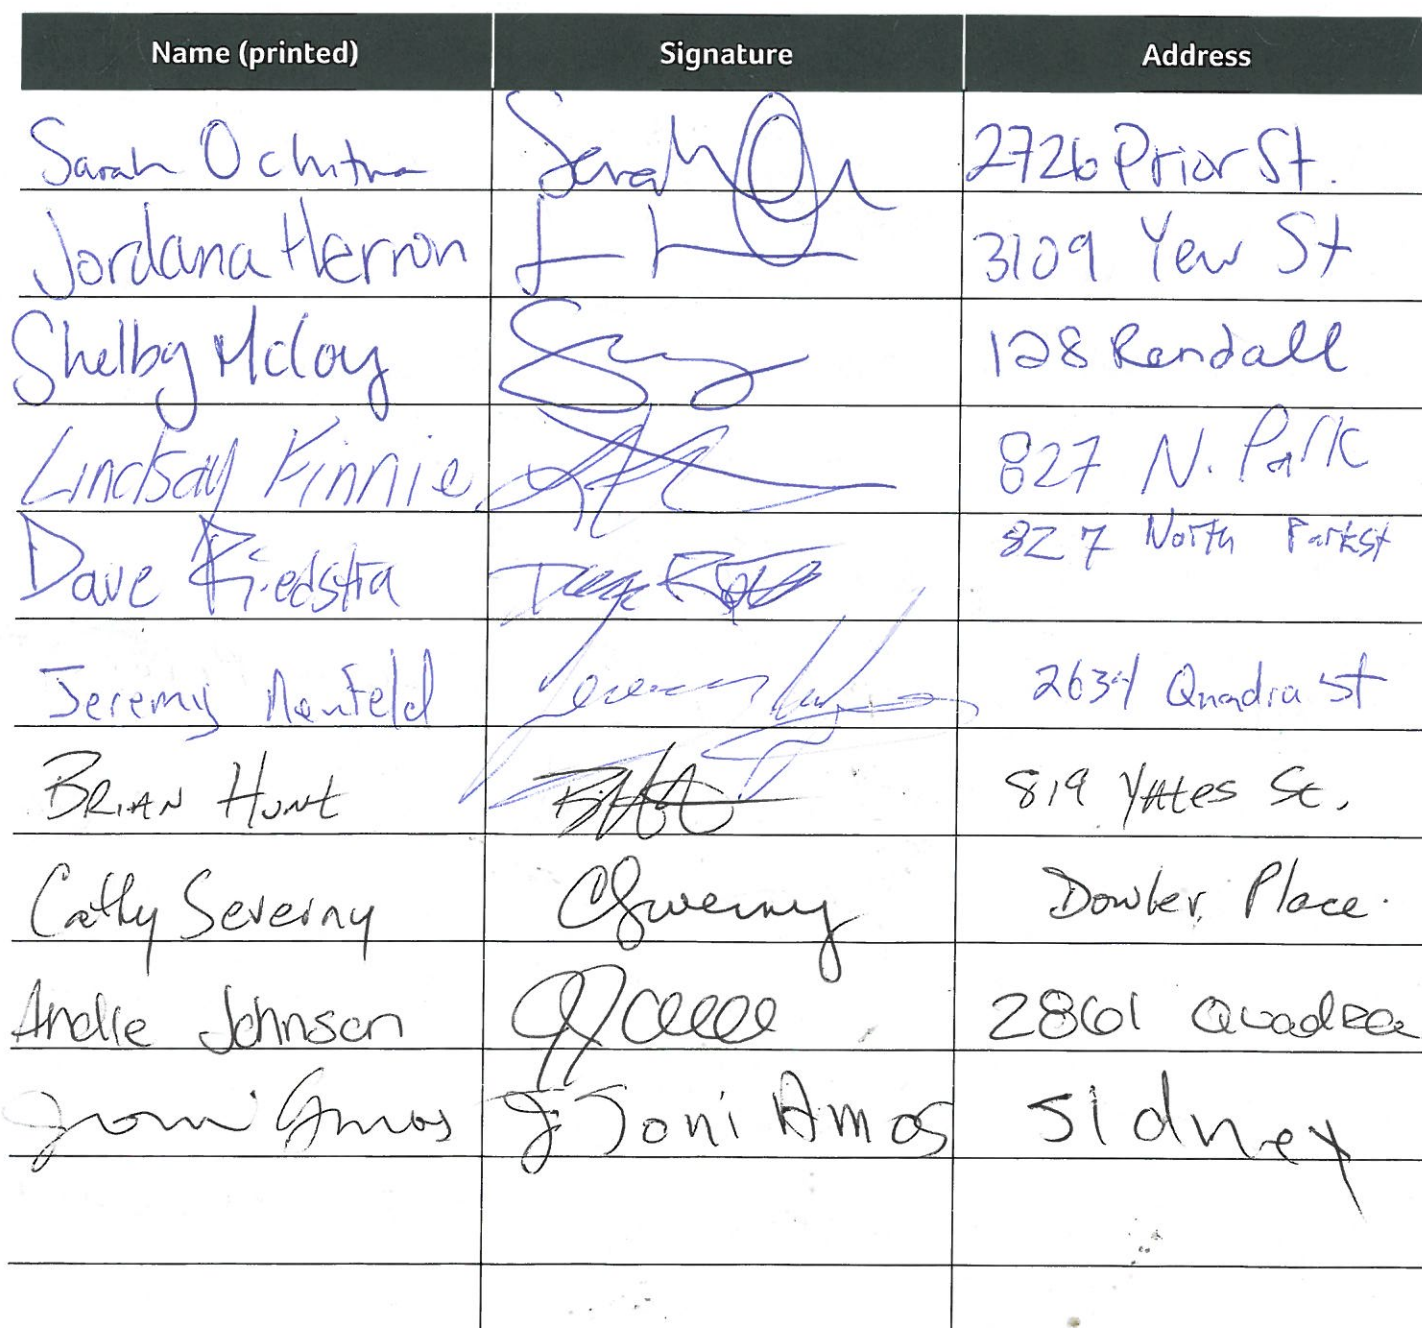 Name (printed) Signature Address
Sarah Sarah 2726 Prior St.
Jordana Herron 3109 Yew St
Shelby McCoy 128 Rendall
Lindsay Finnie 827 N. Park
Dave Riedstra 827 North Park St
Jeremy Neufeld Jeremy 2634 Quadra St
BRIAN HUNT 819 YATES St.
Cathy Severny CSeverny Dowler Place.
Andie Johnson 2861 Quadra
Toni Amos J. Toni Amos Sidney